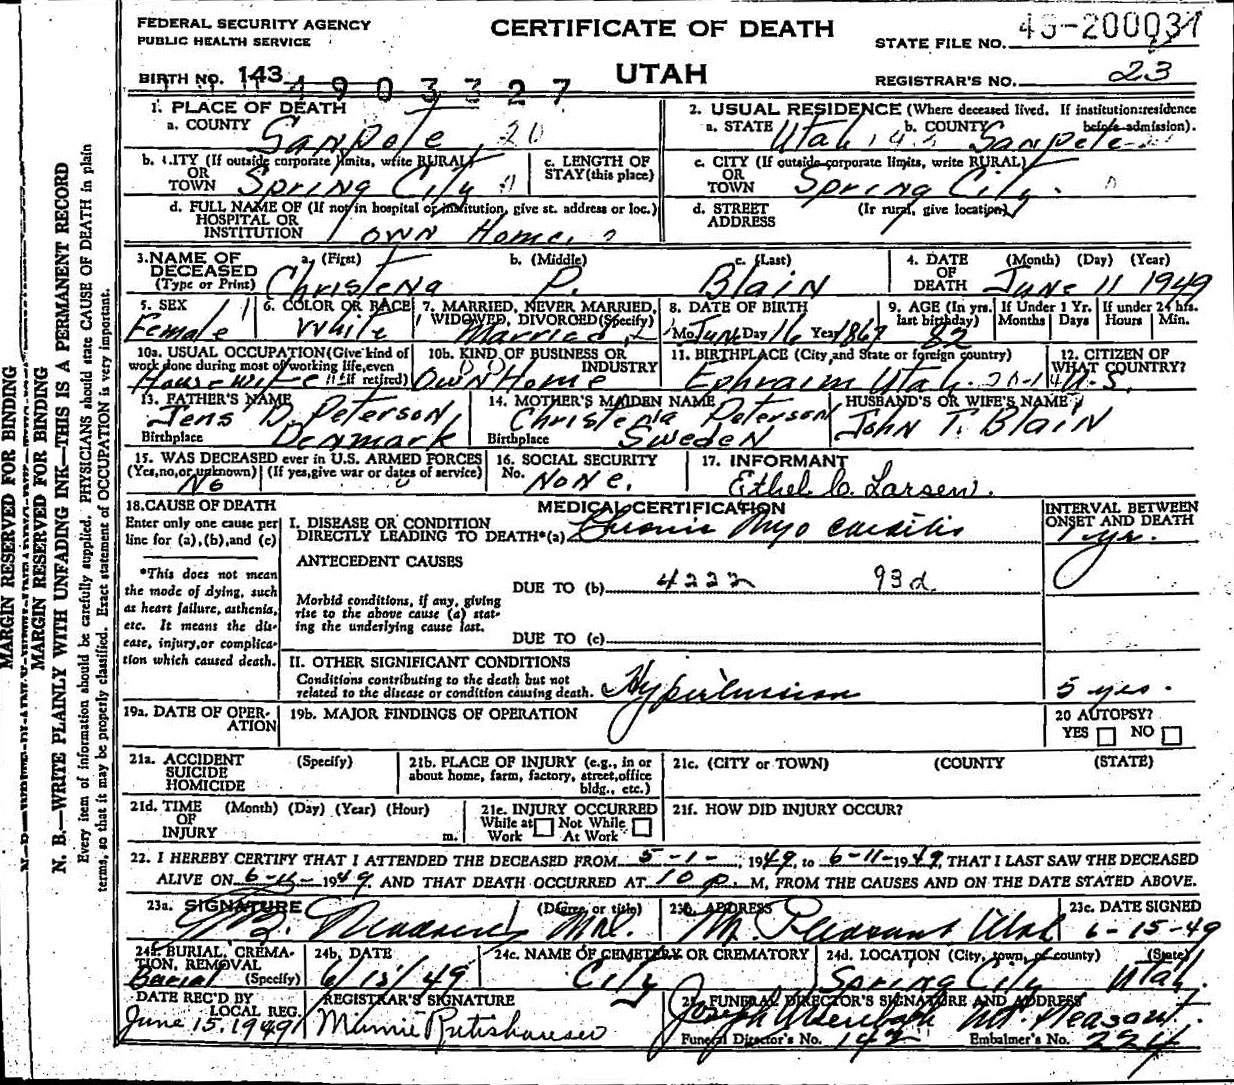 FEDERAL SECURITY AGENCY
PUBLIC HEALTH SERVICE
CERTIFICATE OF DEATH
STATE FILE NO. 49-200031
BIRTH NO. 143 4903327
UTAH
REGISTRAR'S NO. 23
1. PLACE OF DEATH
a. COUNTY Sanpete 20
2. USUAL RESIDENCE (Where deceased lived. If institution: residence before admission).
a. STATE Utah b. COUNTY Sanpete
b. CITY (If outside corporate limits, write RURAL) OR TOWN Spring City
c. LENGTH OF STAY (this place)
c. CITY (If outside corporate limits, write RURAL) OR TOWN Spring City.
d. FULL NAME OF (If not in hospital or institution, give st. address or loc.) HOSPITAL OR INSTITUTION Own Home.
d. STREET ADDRESS (If rural, give location)
3. NAME OF DECEASED (Type or Print)
a. (First) Christena b. (Middle) P. c. (Last) Blain
4. DATE OF DEATH (Month) (Day) (Year) June 11 1949
5. SEX Female
6. COLOR OR RACE White
7. MARRIED, NEVER MARRIED, WIDOWED, DIVORCED (Specify) Married
8. DATE OF BIRTH Mo. June Day 16 Year 1867
9. AGE (In yrs. last birthday) 82
If Under 1 Yr. Months Days
If under 24 hrs. Hours Min.
10a. USUAL OCCUPATION (Give kind of work done during most of working life, even if retired) Housewife
10b. KIND OF BUSINESS OR INDUSTRY Own Home
11. BIRTHPLACE (City, and State or foreign country) Ephraim Utah.
12. CITIZEN OF WHAT COUNTRY? U.S.
13. FATHER'S NAME Jens D. Peterson
Birthplace Denmark
14. MOTHER'S MAIDEN NAME Christena Peterson
Birthplace Sweden
HUSBAND'S OR WIFE'S NAME John T. Blain
15. WAS DECEASED ever in U.S. ARMED FORCES
(Yes, no, or unknown) (If yes, give war or dates of service)
No
16. SOCIAL SECURITY No. None.
17. INFORMANT Ethel C. Larsen.
18. CAUSE OF DEATH
Enter only one cause per line for (a), (b), and (c)
*This does not mean the mode of dying, such as heart failure, asthenia, etc. It means the disease, injury, or complication which caused death.
MEDICAL CERTIFICATION
INTERVAL BETWEEN ONSET AND DEATH
I. DISEASE OR CONDITION DIRECTLY LEADING TO DEATH* (a) Chronic Myo carditis 1 yr.
ANTECEDENT CAUSES
DUE TO (b) 4222 93d
Morbid conditions, if any, giving rise to the above cause (a) stating the underlying cause last.
DUE TO (c)
II. OTHER SIGNIFICANT CONDITIONS
Conditions contributing to the death but not related to the disease or condition causing death. Hypertension 5 yrs.
19a. DATE OF OPERATION
19b. MAJOR FINDINGS OF OPERATION
20 AUTOPSY? YES NO
21a. ACCIDENT SUICIDE HOMICIDE (Specify)
21b. PLACE OF INJURY (e.g., in or about home, farm, factory, street, office bldg., etc.)
21c. (CITY or TOWN) (COUNTY (STATE)
21d. TIME OF INJURY (Month) (Day) (Year) (Hour) m.
21e. INJURY OCCURRED While at Work Not While At Work
21f. HOW DID INJURY OCCUR?
22. I HEREBY CERTIFY THAT I ATTENDED THE DECEASED FROM 5-1-, 1949, to 6-11-1949, THAT I LAST SAW THE DECEASED
ALIVE ON 6-11-1949. AND THAT DEATH OCCURRED AT 10 p. M, FROM THE CAUSES AND ON THE DATE STATED ABOVE.
23a. SIGNATURE (Degree or title) Madsen M.D.
23b. ADDRESS Mt. Pleasant Utah
23c. DATE SIGNED 6-15-49
24a. BURIAL, CREMATION, REMOVAL (Specify) Burial
24b. DATE 6/15/49
24c. NAME OF CEMETERY OR CREMATORY City
24d. LOCATION (City, town, or county) (State) Spring City Utah.
DATE REC'D BY LOCAL REG. June 15, 1949
REGISTRAR'S SIGNATURE Mamie Rutishauser
25. FUNERAL DIRECTOR'S SIGNATURE AND ADDRESS Joseph Mt. Pleasant.
Funeral Director's No. 142 Embalmer's No. 224
MARGIN RESERVED FOR BINDING
MARGIN RESERVED FOR BINDING
N. B.—WRITE PLAINLY WITH UNFADING INK—THIS IS A PERMANENT RECORD
Every item of information should be carefully supplied. PHYSICIANS should state CAUSE OF DEATH in plain
terms, so that it may be properly classified. Exact statement of OCCUPATION is very important.